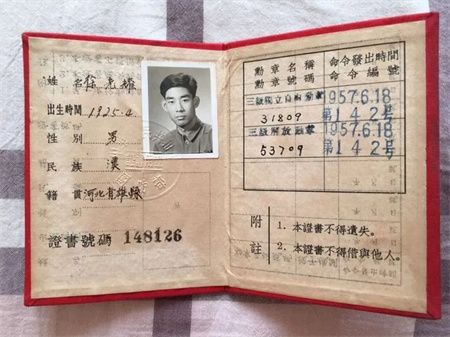 姓名 徐光耀
出生時間 1925.4
性別 男
民族 漢
籍貫 河北省雄縣
證書號碼 148126
勳章名稱 命令發出時間
勳章號碼 命令編號
三級獨立自由勳章 1957.6.18
31809 第142号
三級解放勳章 1957.6.18
53709 第142号
附註
1. 本證書不得遺失。
2. 本證書不得借與他人。